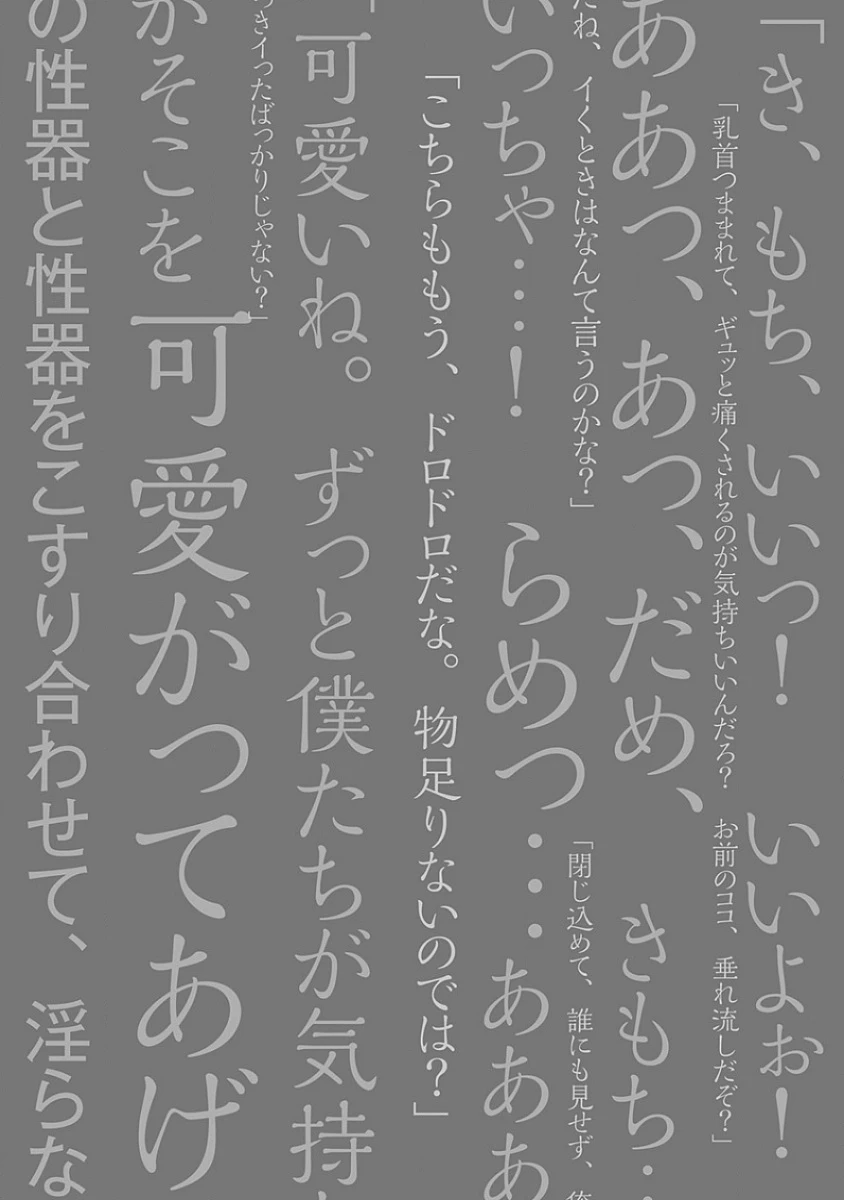 「き、もち、いいっ！　いいよぉ！
「乳首つままれて、ギュッと痛くされるのが気持ちいいんだろ？　お前のココ、垂れ流しだぞ？」
ああっ、あっ、だめ、きもち‥
だね、イくときはなんて言うのかな？」
「閉じ込めて、誰にも見せず、俺
いっちゃ…！
らめっ…あああ
「こちらももう、ドロドロだな。　物足りないのでは？」
「可愛いね。　ずっと僕たちが気持
っきイったばっかりじゃない？」
がそこを
可愛がってあげ
の性器と性器をこすり合わせて、淫らな